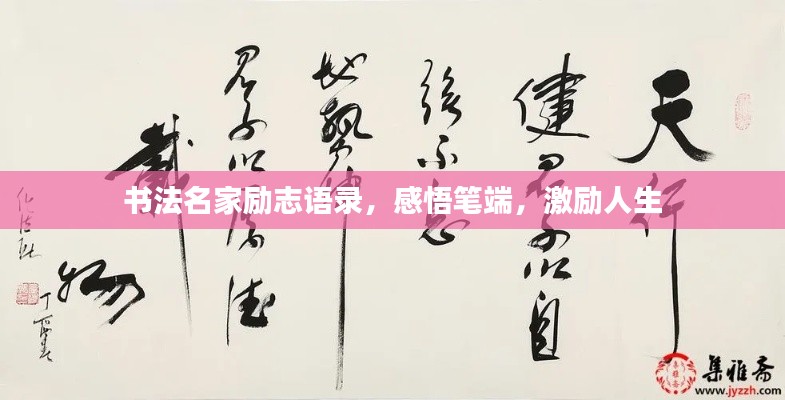 天行
健君子以自
强不息
地势坤
君子以厚德
載
物
书法名家励志语录，感悟笔端，激励人生
集雅斋
www.jyzzh.com